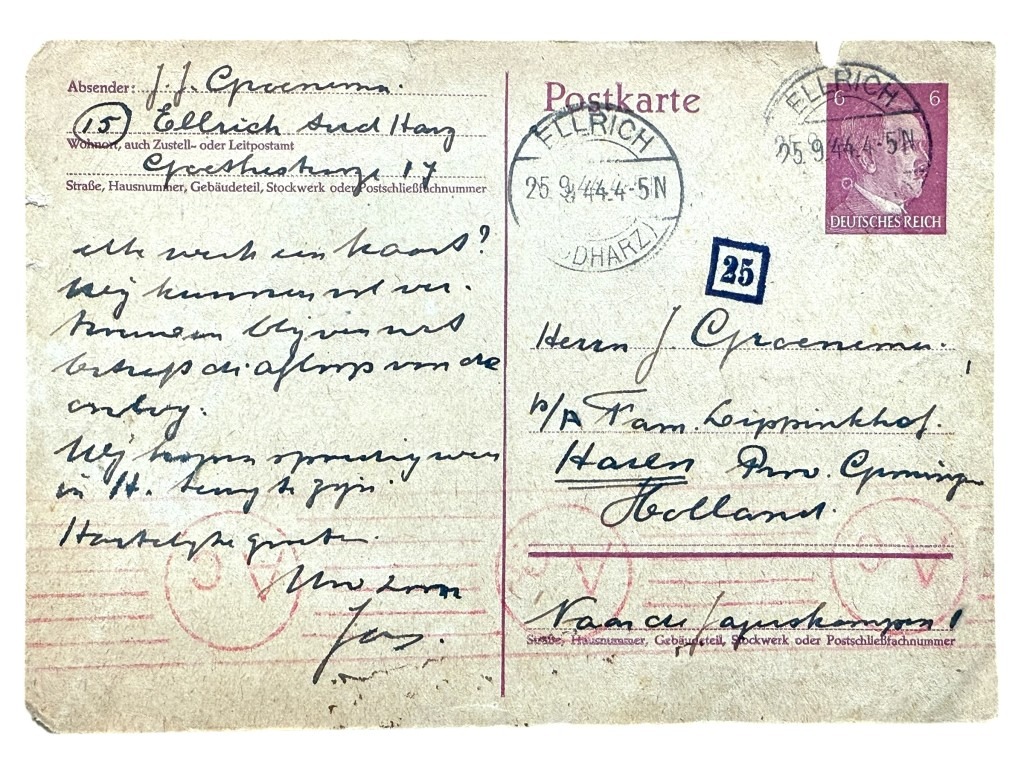 Absender: J. J. Groenema.
(15) Ellrich Süd Harz
Wohnort, auch Zustell- oder Leitpostamt
Goethestrasse 17
Straße, Hausnummer, Gebäudeteil, Stockwerk oder Postschließfachnummer
elke week een kaart?
Wij kunnen vol ver-
trouwen blijven wat
betreft de afloop van de
oorlog.
Wij hopen spoedig weer
in H. terug te zijn.
Hartelijke groeten.
Uw zoon
Jos.
Postkarte
ELLRICH
25.9.44.4-5N
(SÜDHARZ)
ELLRICH
25.9.44.4-5N
6 6
DEUTSCHES REICH
25
Herrn J. Groenema.
p/A Fam. Lippinkhof.
Haren Prov. Groningen
Holland.
Naar de Jagerskampen 1
Straße, Hausnummer, Gebäudeteil, Stockwerk oder Postschließfachnummer
A c
A c
A c